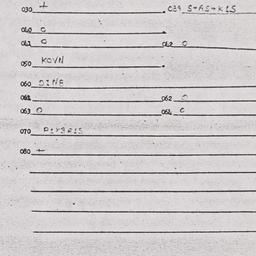 030 + 039 S+AS+KIS
040 0
041 0 042 0
050 KOVN
060 DINA
061 062 0
063 0 064 0
070
080 +